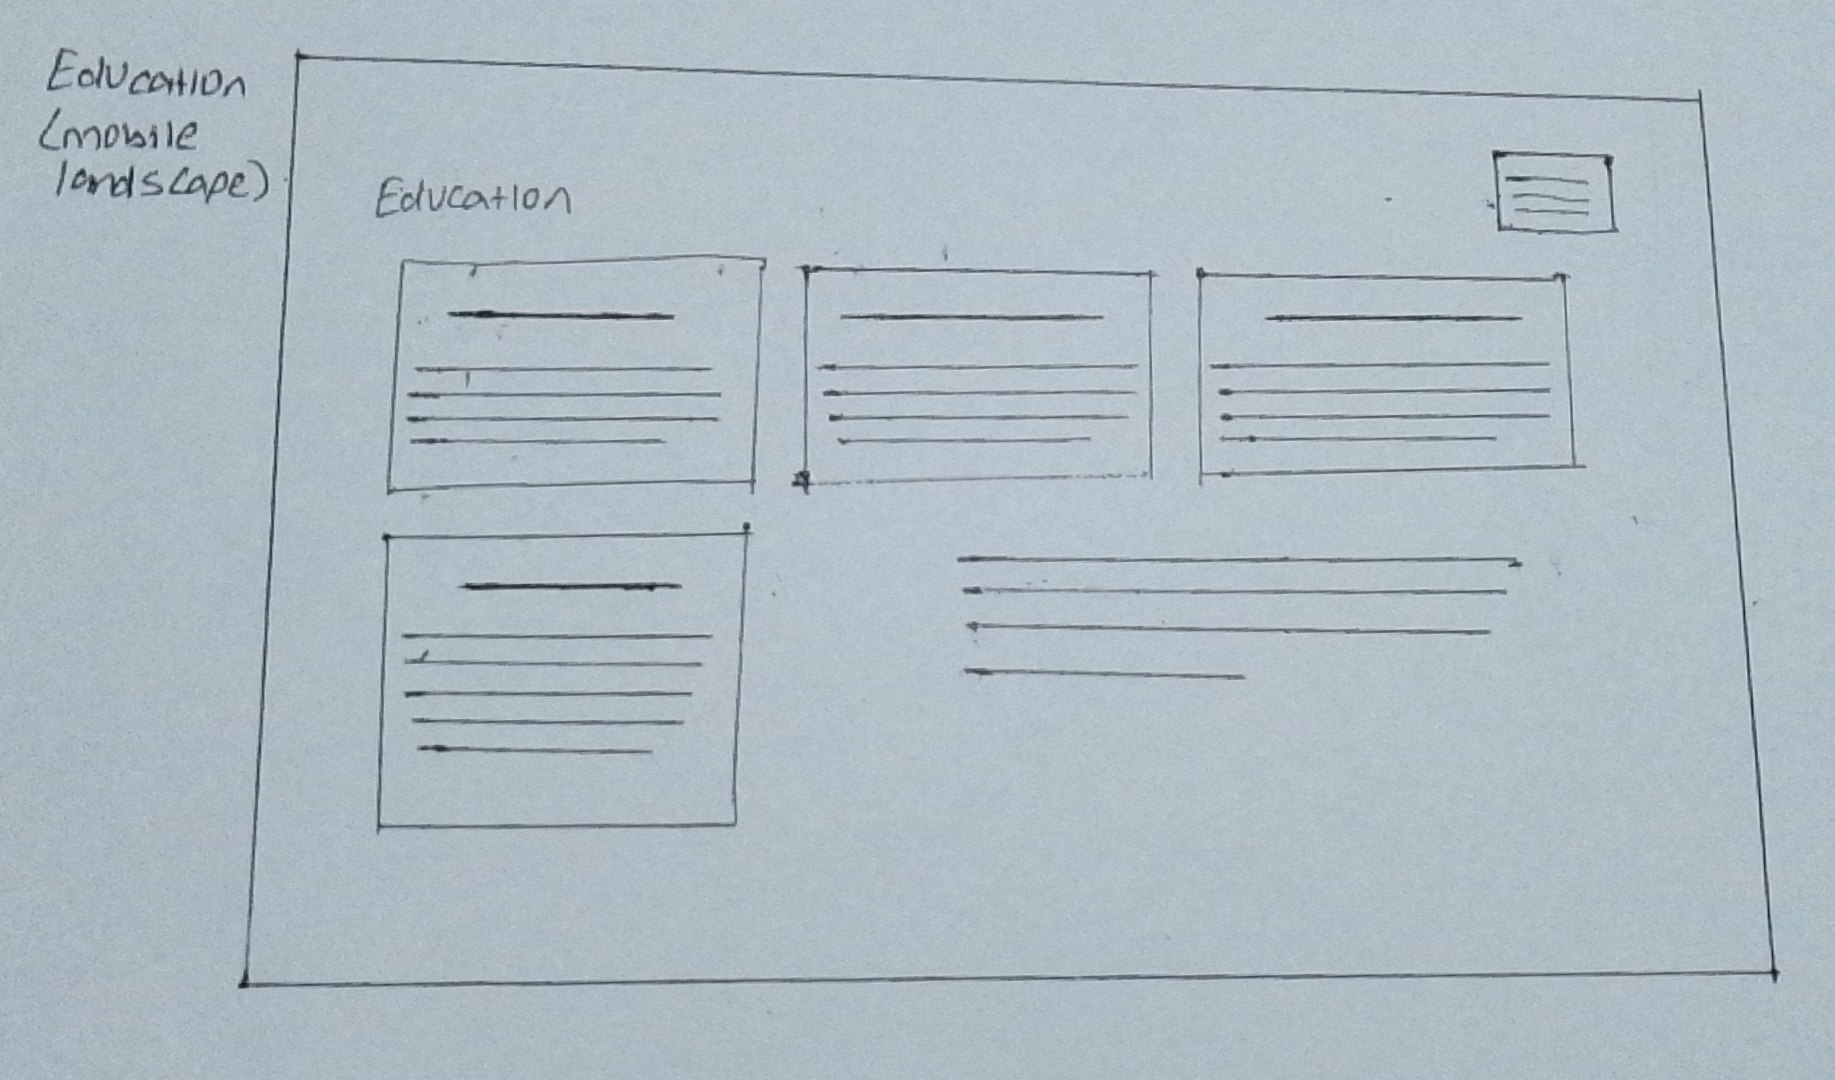 Education
(mobile
landscape)
Education